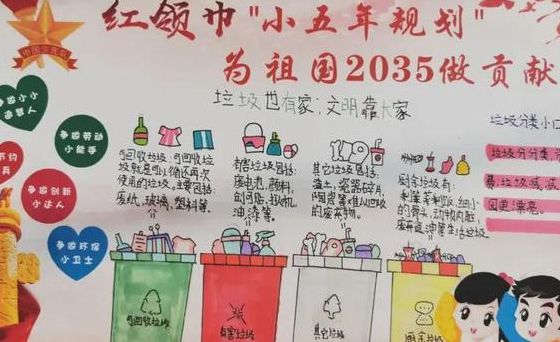 红领巾"小五年规划"
为祖国2035做贡献
中国少先队
垃圾也有家，文明靠大家
争做小小
追梦人
争做劳动
小能手
节约
兵
争做创新
小达人
争做环保
小卫士
可回收垃圾：可回收垃
圾就是可以循环再次
使用的垃圾，主要包括：
废纸、玻璃、塑料等。
有害垃圾包括：
废电池、颜料、
油漆等。
其它垃圾包括：
渣土、瓷器碎片、
陶瓷等难以回收
的废弃物。
厨余垃圾有：
的骨头、动物内脏、
油等生活垃圾
垃圾分类小口
垃圾分分类
园更漂亮。
可回收垃圾
有害垃圾
其它垃圾
厨余垃圾